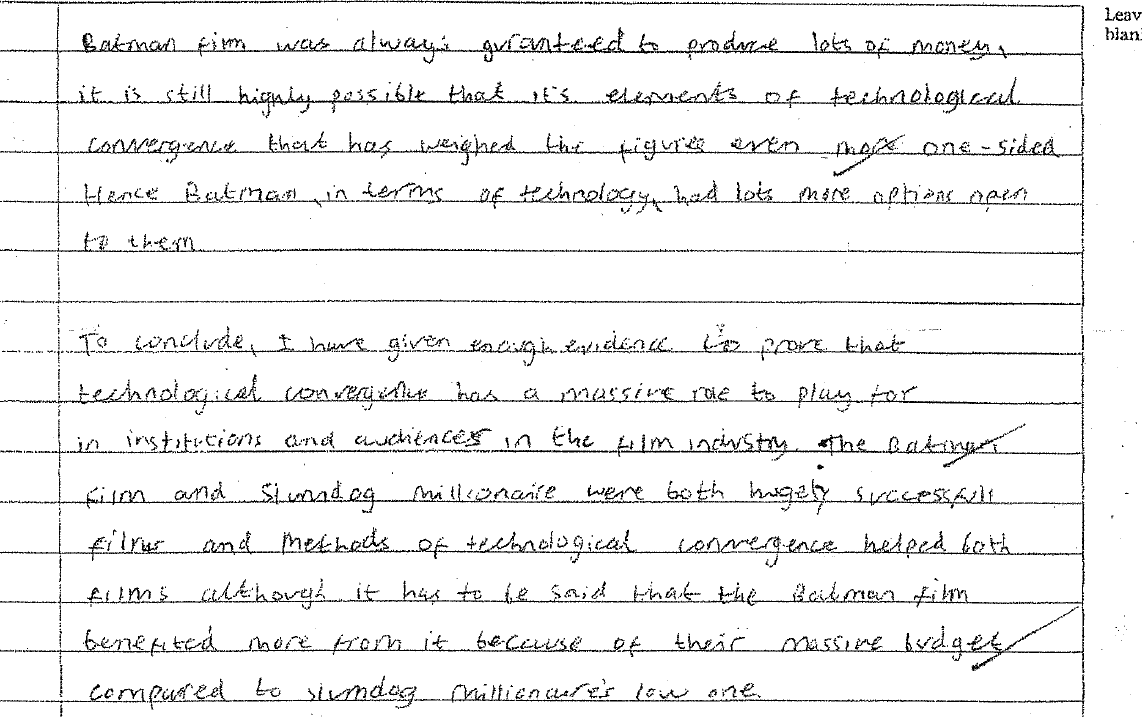 Leav
blank
Batman film was always guranteed to produce lots of money,
it is still highly possible that it's elements of technological
convergence that has weighed the figures even more one-sided
Hence Batman, in terms of technology, had lots more options open
to them
To conclude, I have given enough evidence to prove that
technological convergence has a massive role to play for
in institutions and audiences in the film industry. The Batman
film and Slumdog millionaire were both hugely successfull
films and methods of technological convergence helped both
films although it has to be said that the Batman film
benefited more from it because of their massive budget
compared to slumdog millionaire's low one.